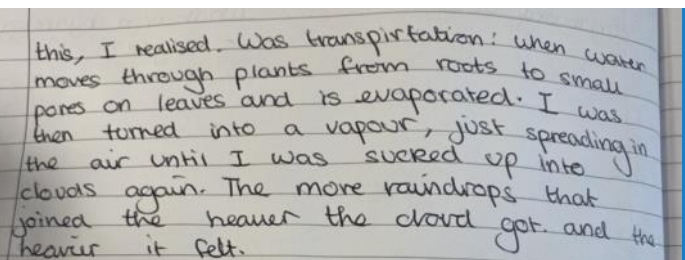 this, I realised. Was transpirtation: when water
moves through plants from roots to small
pores on leaves and is evaporated. I was
then torned into a vapour, just spreading in
the air until I was sucked up into
clouds again. The more raindrops that
joined the heauer the cloud got. and the
heavier it felt.